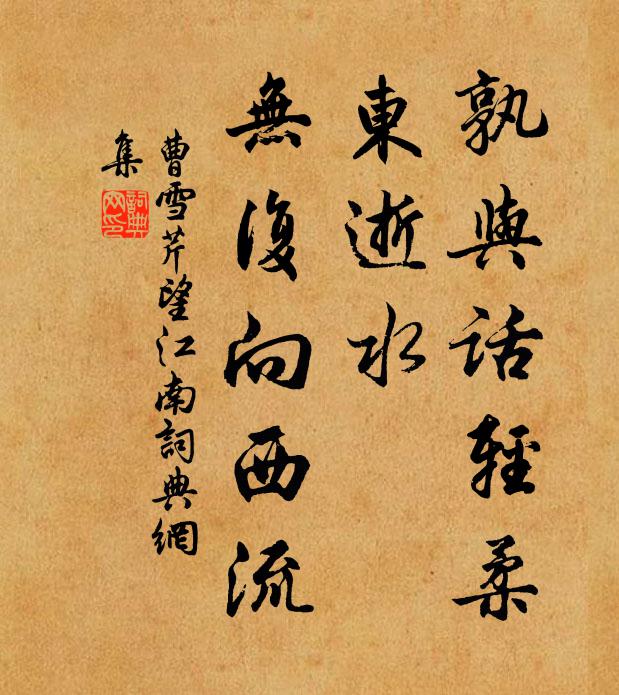 孰與話輕柔
東逝水
無復向西流
曹雪芹望江南詞典網
集
詞典網印